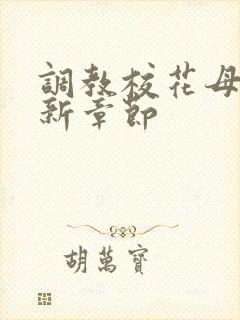 調教校花母
新章節
胡萬寶